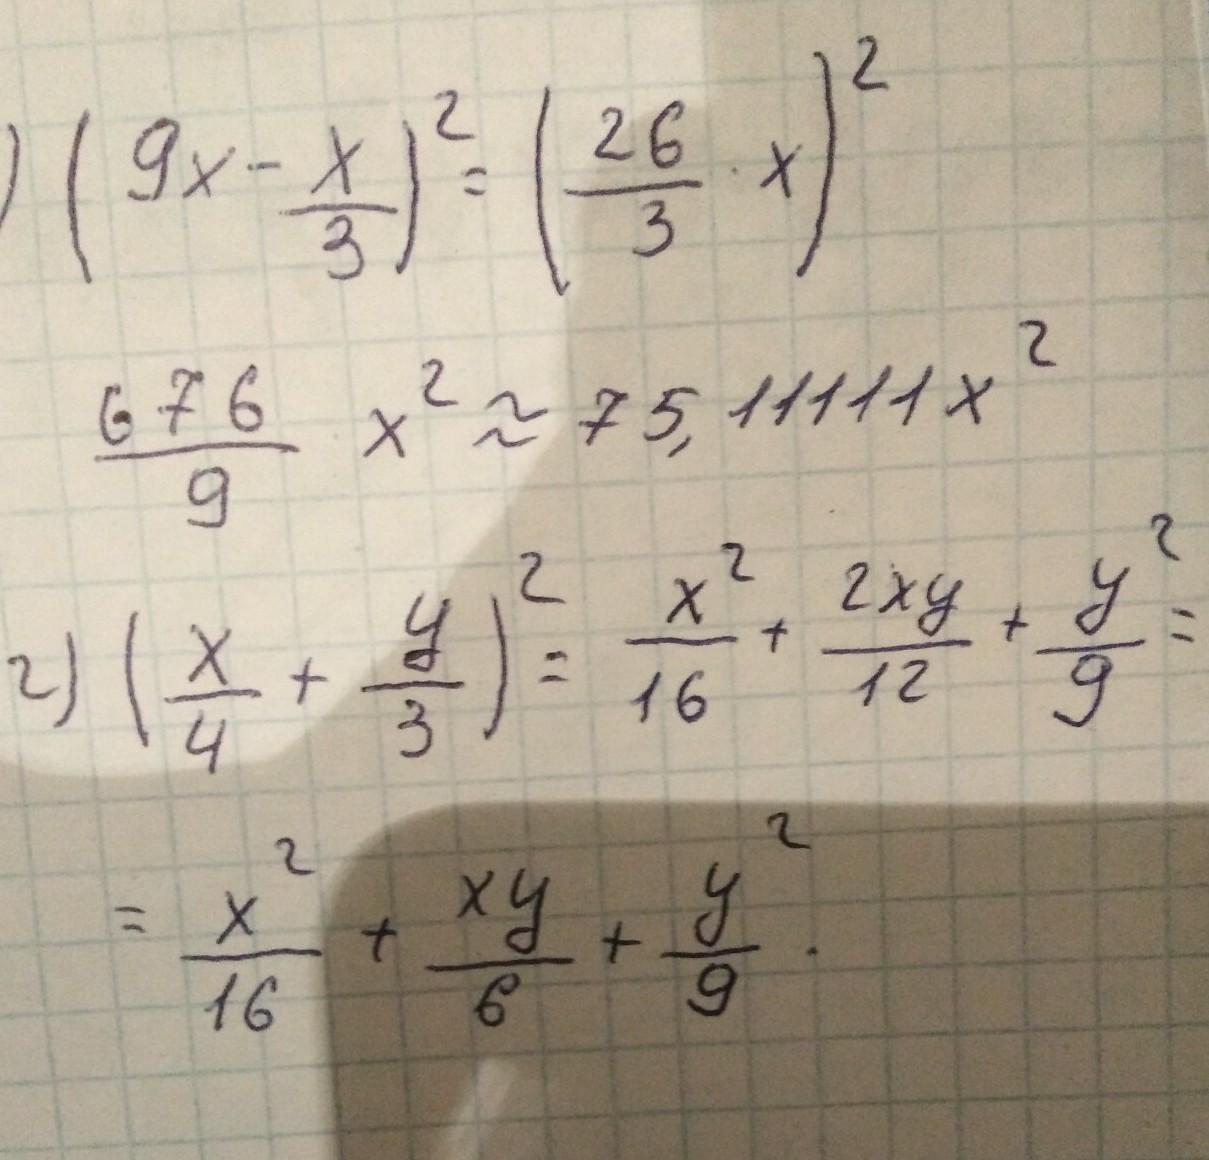 ) (9x - x/3)² = (26/3 · x)²
676/9 x² ≈ 75,11111x²
2) (x/4 + y/3)² = x²/16 + 2xy/12 + y²/9 =
= x²/16 + xy/6 + y²/9 .